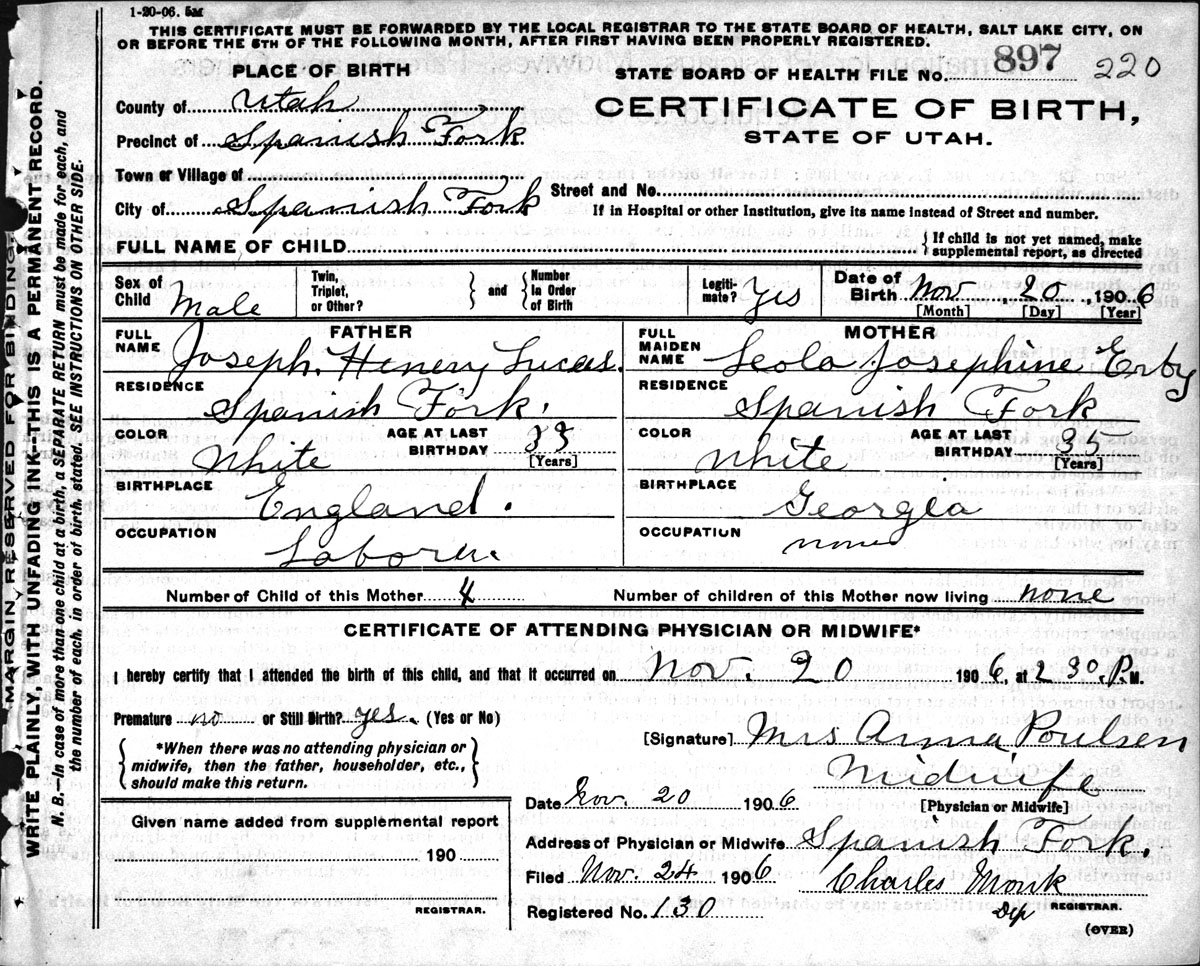 1-20-06. 5M
THIS CERTIFICATE MUST BE FORWARDED BY THE LOCAL REGISTRAR TO THE STATE BOARD OF HEALTH, SALT LAKE CITY, ON
OR BEFORE THE 5TH OF THE FOLLOWING MONTH, AFTER FIRST HAVING BEEN PROPERLY REGISTERED.
PLACE OF BIRTH
STATE BOARD OF HEALTH FILE No. 897 220
County of Utah
CERTIFICATE OF BIRTH,
Precinct of Spanish Fork
STATE OF UTAH.
Town or Village of
Street and No.
City of Spanish Fork
If in Hospital or other Institution, give its name instead of Street and number.
FULL NAME OF CHILD
{ If child is not yet named, make
supplemental report, as directed
Sex of Child Male
Twin, Triplet, or Other? } and { Number in Order of Birth
Legiti-mate? yes
Date of Birth Nov. 20, 1906
[Month] [Day] [Year]
FATHER
FULL NAME Joseph. Henery Lucas.
RESIDENCE Spanish Fork.
COLOR White
AGE AT LAST BIRTHDAY 33
[Years]
BIRTHPLACE England.
OCCUPATION Laborer.
MOTHER
FULL MAIDEN NAME Leola Josephine Erby
RESIDENCE Spanish Fork
COLOR White
AGE AT LAST BIRTHDAY 35
[Years]
BIRTHPLACE Georgia
OCCUPATION none
Number of Child of this Mother 4 Number of children of this Mother now living none
CERTIFICATE OF ATTENDING PHYSICIAN OR MIDWIFE*
I hereby certify that I attended the birth of this child, and that it occurred on Nov. 20 1906, at 2 30. P. M.
Premature no or Still Birth? yes. (Yes or No)
{ *When there was no attending physician or
midwife, then the father, householder, etc.,
should make this return. }
[Signature] Mrs Anna Poulsen
Midwife
[Physician or Midwife]
Date Nov. 20 1906
Given name added from supplemental report
190
REGISTRAR.
Address of Physician or Midwife Spanish Fork.
Filed Nov. 24 1906 Charles Monk
Registered No. 130 Dep REGISTRAR.
(OVER)
MARGIN RESERVED FOR BINDING.
WRITE PLAINLY, WITH UNFADING INK--THIS IS A PERMANENT RECORD.
N. B.--In case of more than one child at a birth, a SEPARATE RETURN must be made for each, and
the number of each, in order of birth, stated. SEE INSTRUCTIONS ON OTHER SIDE.